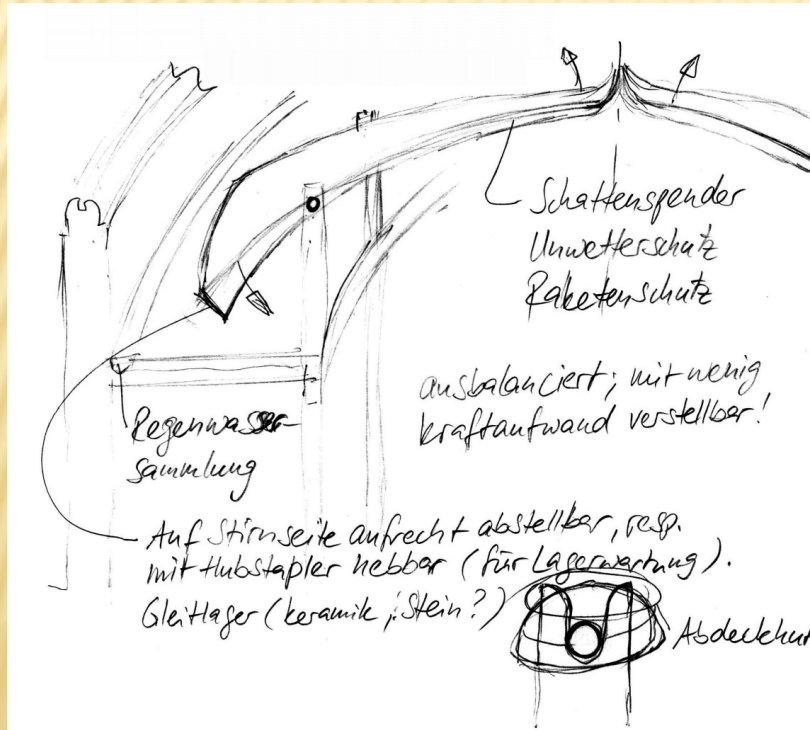 Schattenspender
Unwetterschutz
Raketenschutz
ausbalanciert; mit wenig
kraftaufwand verstellbar!
Regenwasser-
sammlung
Auf Stirnseite aufrecht abstellbar, resp.
mit Hubstapler hebbar (für Lagerwartung).
Gleitlager (keramik; Stein?)
Abdeckhut